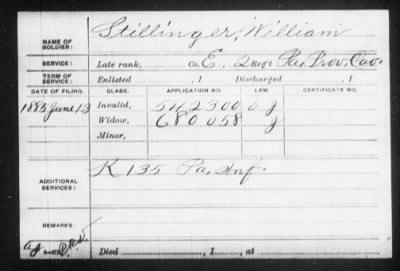 NAME OF SOLDIER: Stillinger, William
SERVICE: Late rank, Co. E, 2 Reg't Pa. Prov. Cav.
TERM OF SERVICE: Enlisted , 1 Discharged , 1
DATE OF FILING. CLASS. APPLICATION NO. LAW. CERTIFICATE NO.
1885 June 13 Invalid, 542300 J
Widow, 680058 J
Minor,
ADDITIONAL SERVICES: K 135 Pa. Inf.
REMARKS:
Died , 1 , at